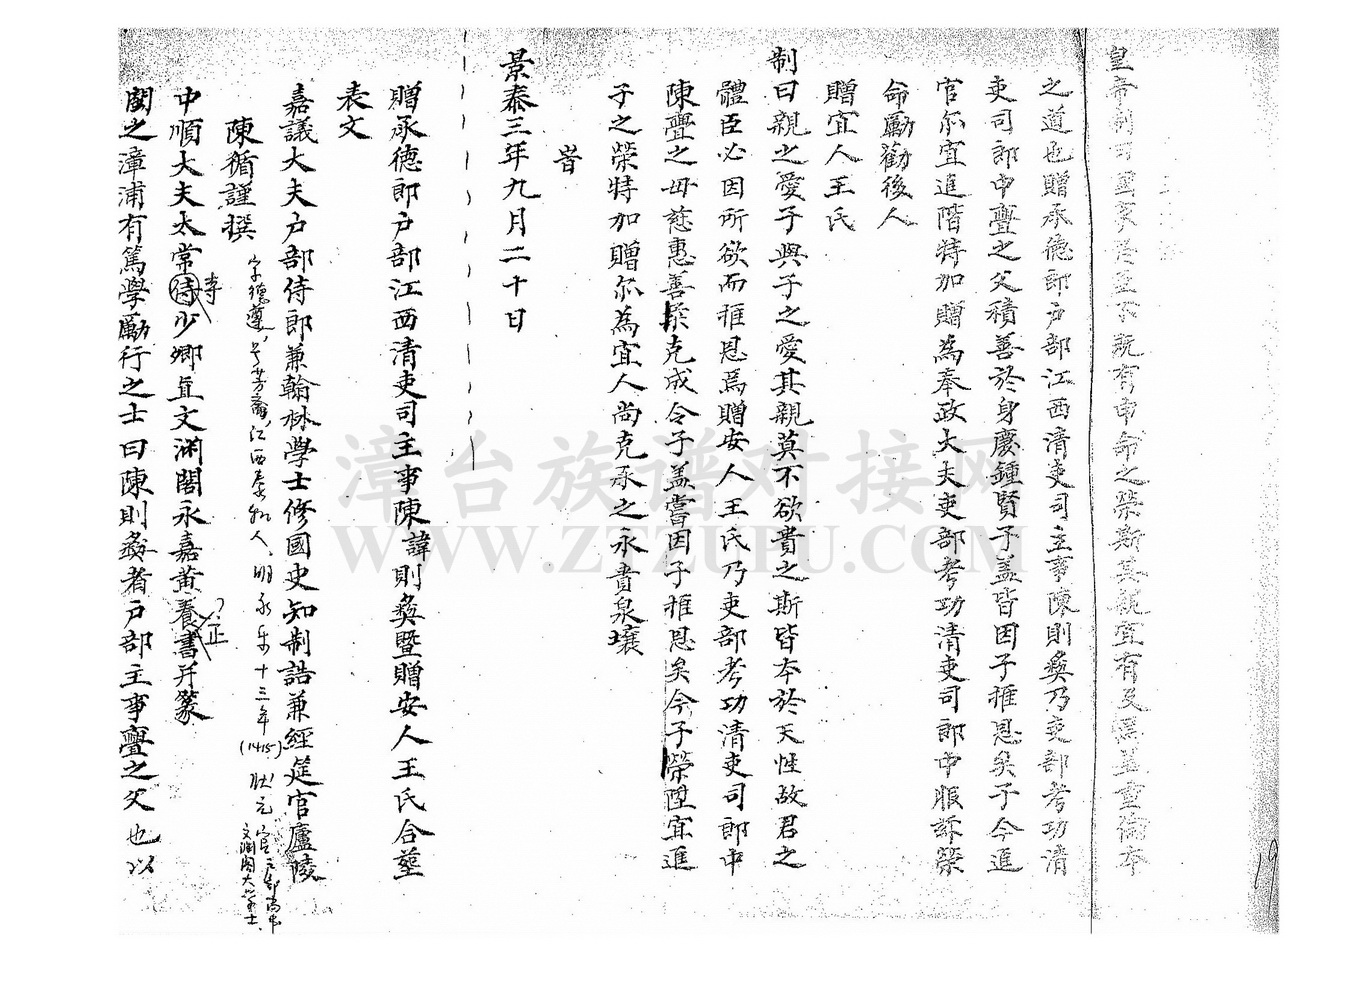 皇帝制曰國家隆重不既有申命之榮斯其親宜有及焉蓋重倫本
之道也贈承德郎戶部江西清吏司主事陳則彝乃吏部考功清
吏司郎中亹之父積善於身慶鍾賢子蓋皆因子推恩矣子今進
官尔宜進階特加贈為奉政大夫吏部考功清吏司郎中服玆榮
命勵勸後人
贈宜人王氏
制曰親之愛子與子之愛其親莫不欲貴之斯皆本於天性故君之
體臣必因所欲而推恩焉贈安人王氏乃吏部考功清吏司郎中
陳亹之毋慈惠善柔克成令子盖嘗因子推恩矣今子榮陞宜進
子之榮特加贈尔為宜人尚克承之永賁泉壤
景泰三年九月二十日
贈承德郎戶部江西清吏司主事陳諱則彝暨贈安人王氏合塟
表文
嘉議大夫戶部侍郎兼翰林學士修國史知制誥兼經筵官廬陵
陳循謹撰
字德遵,号芳洲,江西泰和人,明永乐十三年(1415)狀元
官户部尚书
文渊阁大学士
中順大夫太常侍少卿直文渊閣永嘉黄養書并篆
寺
?正
閩之漳浦有篤學勵行之士曰陳則彝者戶部主事亹之父也以
19
漳台族谱对接网
WWW.ZTZUPU.COM